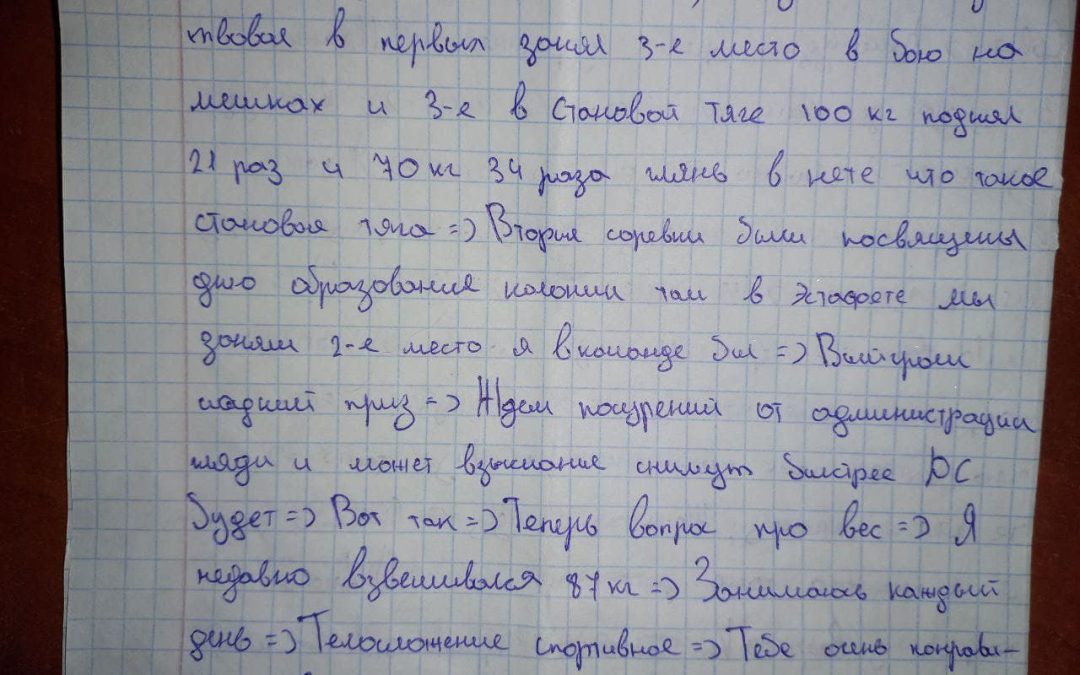 твовал в первых занял 3-е место в бою на
мешках и 3-е в становой тяге 100 кг поднял
21 раз и 70 кг 34 раза глянь в нете что такое
становая тяга =) Вторые соревы были посвящены
дню образования колонии там в эстафете мы
заняли 2-е место я в команде был =) Выиграли
сладкий приз =) Ждем поощрений от администрации
гляди и может взыскание снимут быстрее ДС
будет =) Вот так =) Теперь вопрос про вес =) Я
недавно взвешивался 87 кг =) Занимаюсь каждый
день =) Телосложение спортивное =) Тебе очень понрави-